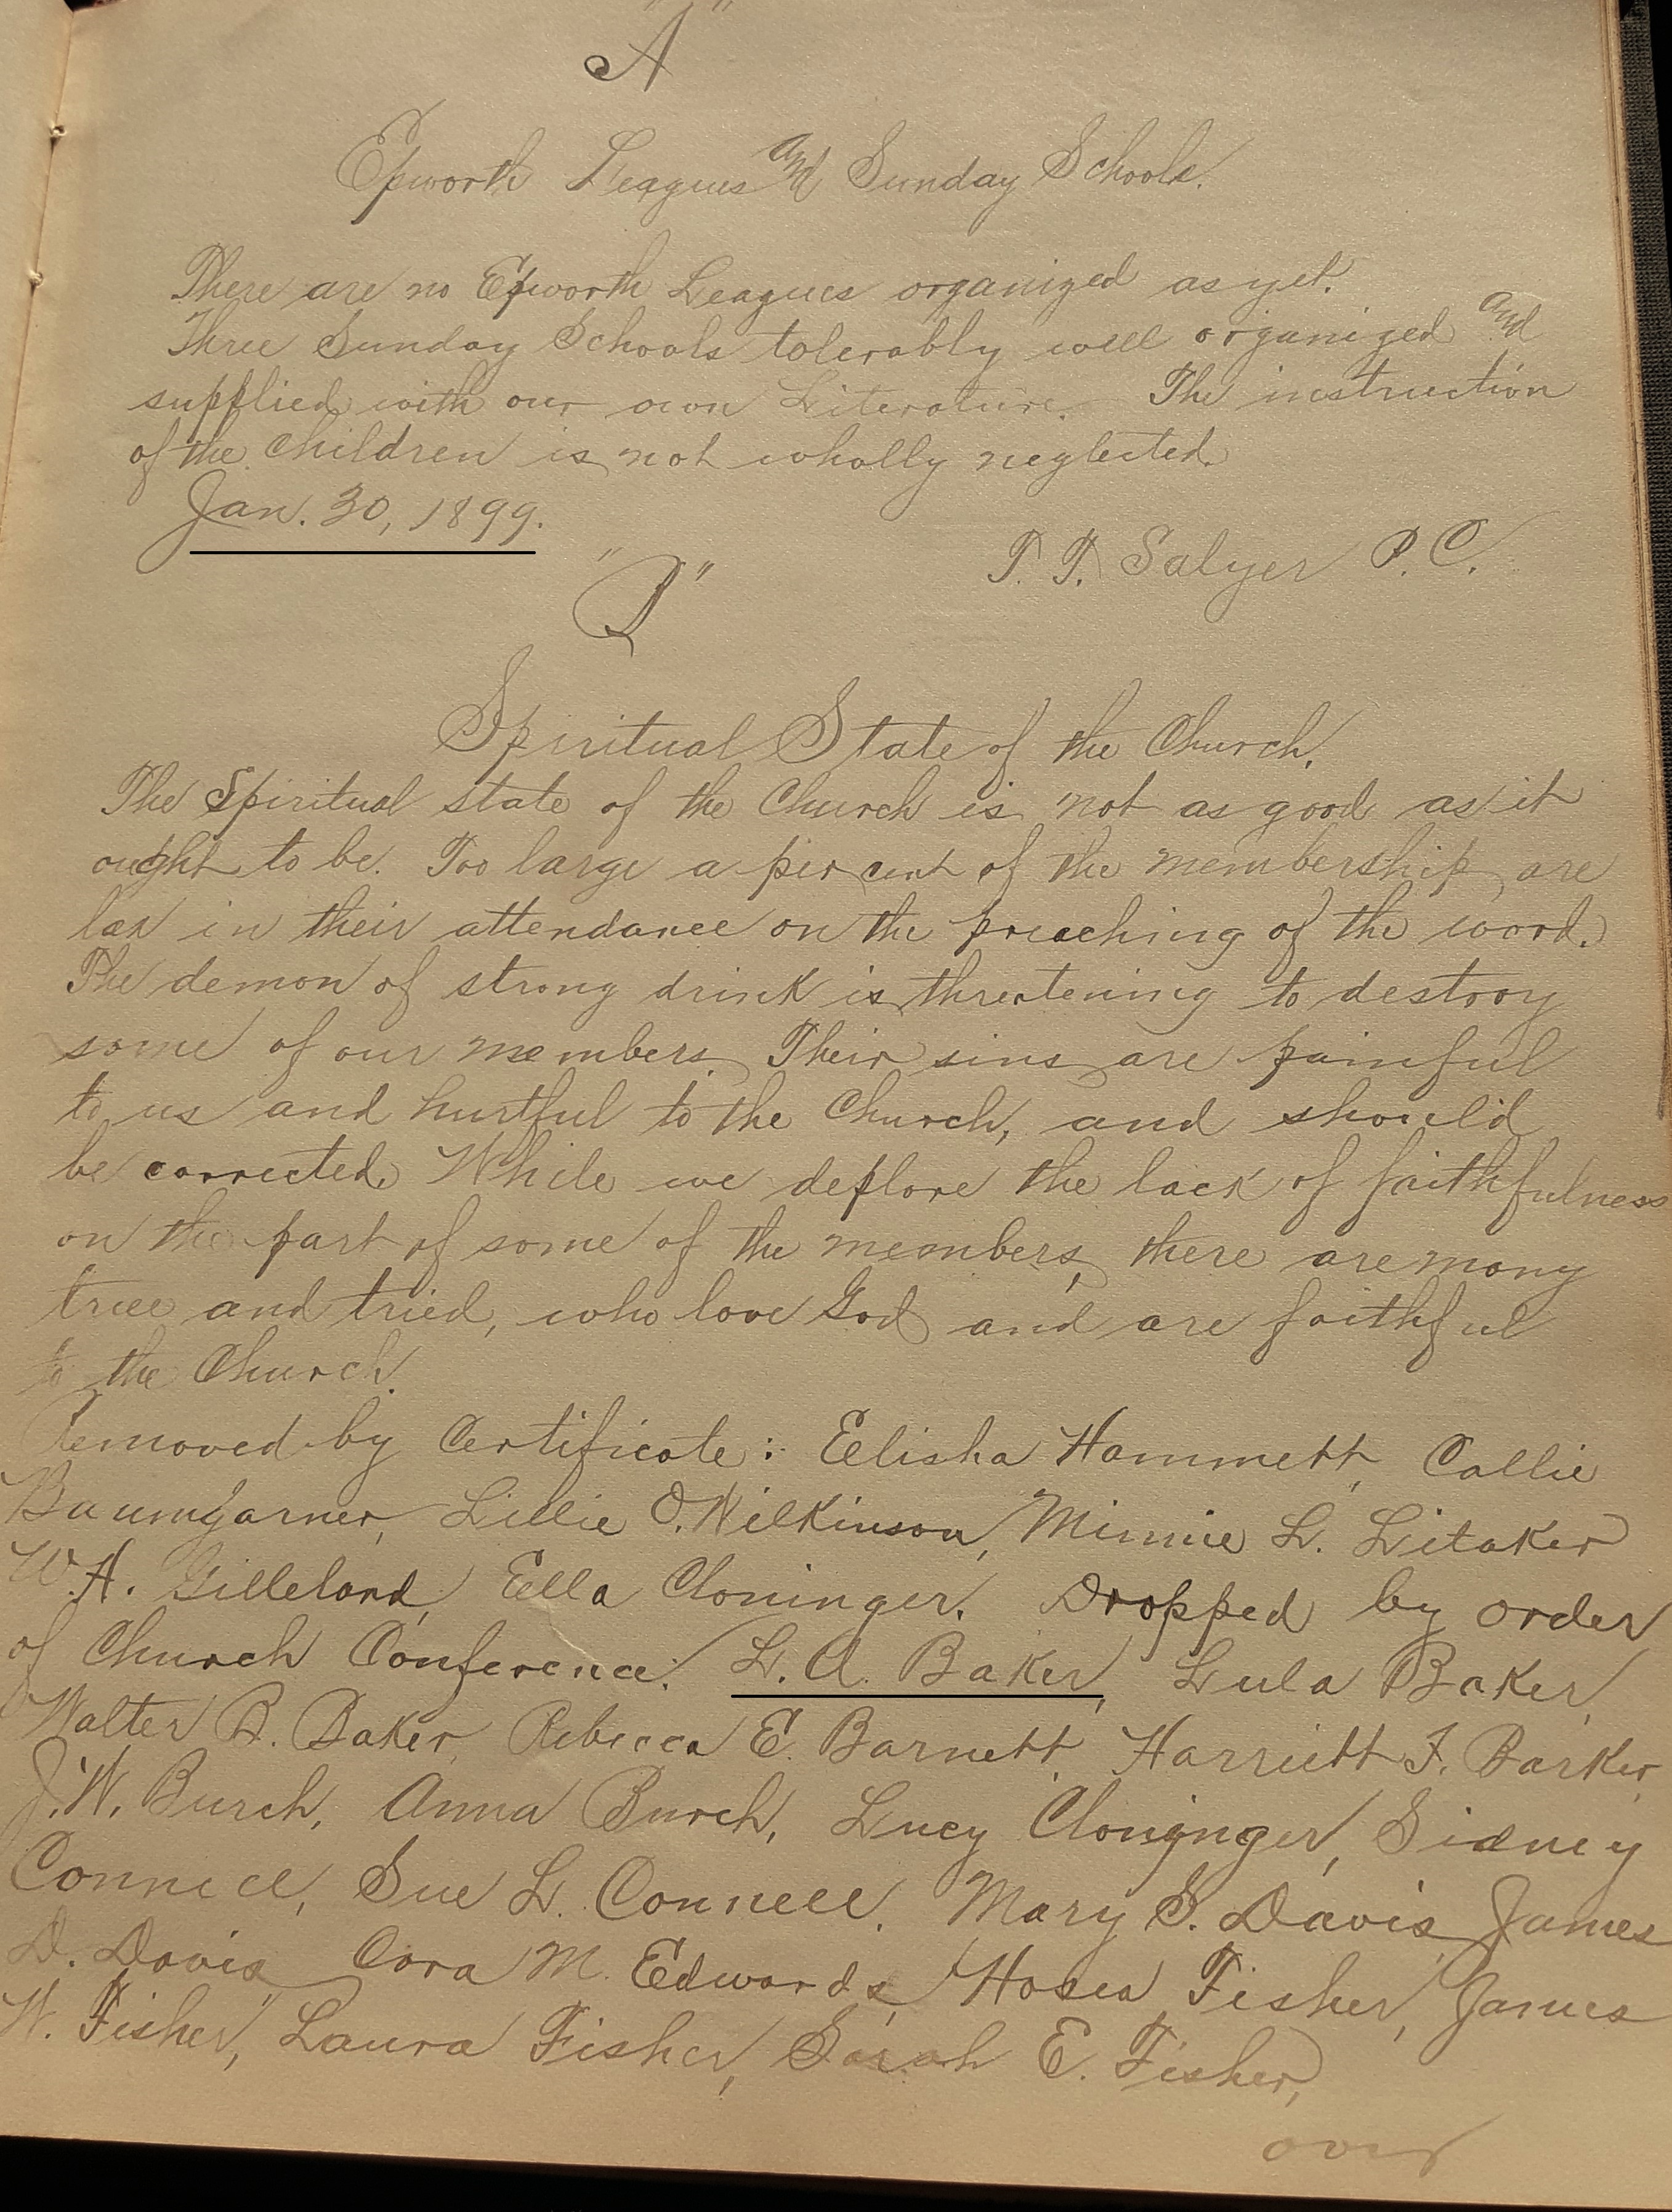 "A"
Epworth Leagues and Sunday Schools.
There are no Epworth Leagues organized as yet.
Three Sunday Schools tolerably well organized and
supplied with our own Literature. The instruction
of the children is not wholly neglected.
Jan. 30, 1899.
T. T. Salyer P. C.
Spiritual State of the Church.
The Spiritual state of the Church is not as good as it
ought to be. Too large a per cent of the membership are
lax in their attendance on the preaching of the word.
The demon of strong drink is threatening to destroy
some of our members. Their sins are painful
to us and hurtful to the Church, and should
be corrected. While we deplore the lack of faithfulness
on the part of some of the members, there are many
true and tried, who love God and are faithful
to the Church.
Removed by Certificate: Elisha Hammett, Callie
Baumgarner, Lillie O. Wilkinson, Minnie L. Litaker
W. A. Gilleland, Ella Cloninger. Dropped by order
of Church Conference: L. A. Baker, Lula Baker,
Walter B. Baker, Rebecca E. Barnett, Harriett F. Barker,
J. W. Burch, Anna Burch, Lucy Cloninger, Sidney
Connell, Sue L. Connell, Mary S. Davis, James
D. Davis, Cora M. Edwards, Hosea Fisher, James
W. Fisher, Laura Fisher, Sarah E. Fisher,
over